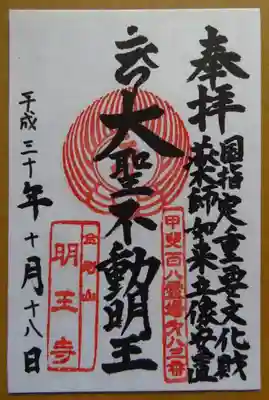 奉拝
国指定重要文化財
薬師如来立像安置
甲斐百八霊場第八三番
大聖不動明王
金剛山
明王寺
平成三十年十月十八日